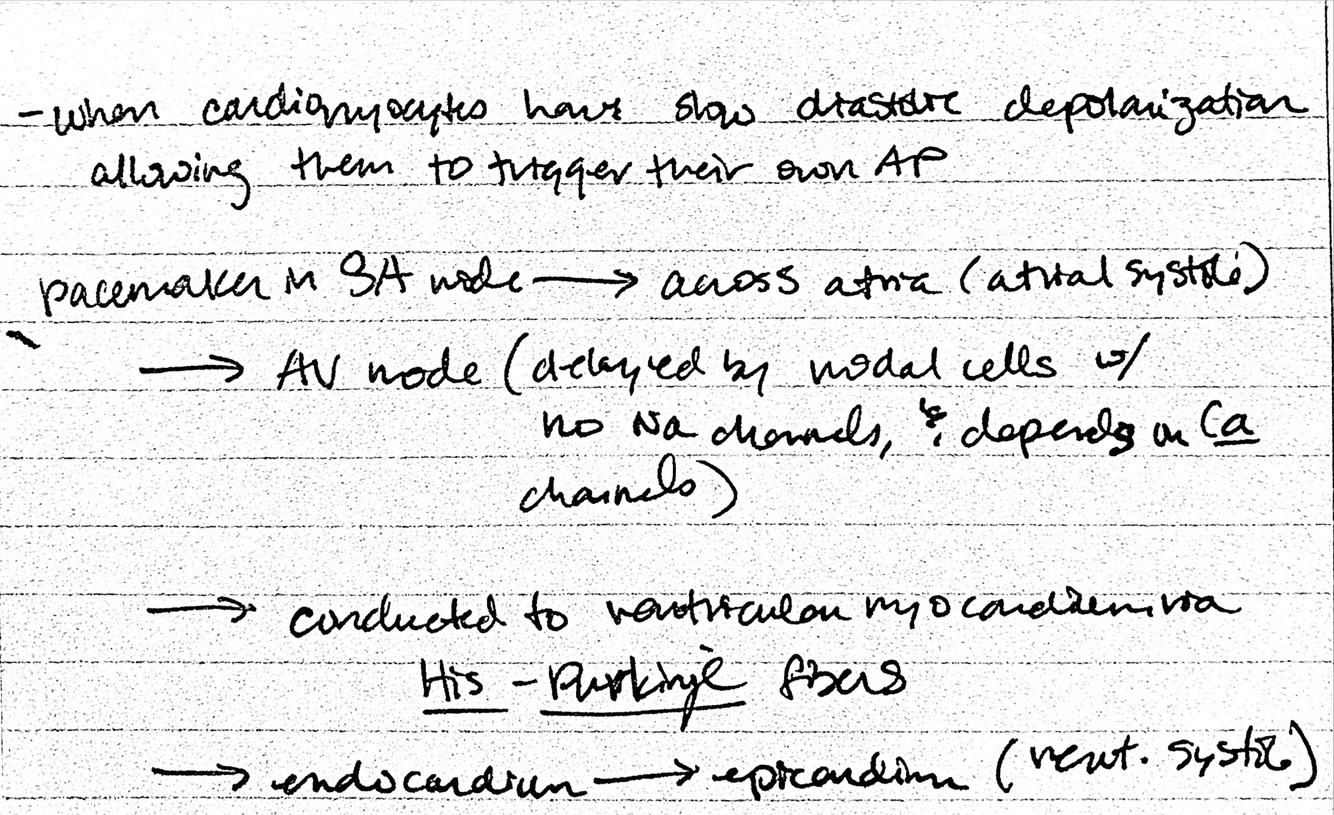 - when cardiomyocytes have slow diastolic depolarization
allowing them to trigger their own AP
pacemaker in SA node → across atria (atrial systole)
→ AV node (delayed by nodal cells w/
no Na channels, & depends on Ca
channels)
→ conducted to ventricular myocardium via
His - Purkinje fibers
→ endocardium → epicardium (vent. systole)